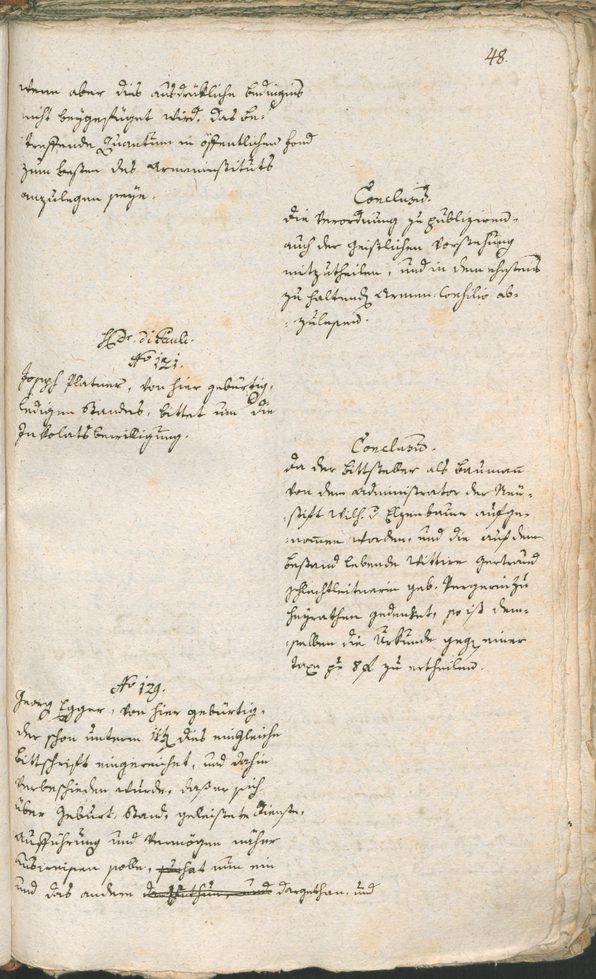 48.
wenn aber dies ausdrükliche Bedingniß
nicht beygefüget wird, das be-
treffende Quantum in öffentlichen Fond
zum besten des Armeninstituts
anzulegen seye.
Conclusum.
Die Verordnung zu publiziren,
auch der geistlichen Vorstehung
mitzutheilen, und in dem ehestens
zu haltend Armen-Consilio ab-
zulesen.
H: Dr. di Pauli.
No 121.
Joseph Platner, von hier gebürtig,
ledigen Standes, bittet um die
Inkolatsbewilligung.
Conclusum.
Da der Bittsteller als Baumann
von dem Administrator der Neu-
stift Elzenbaum aufge-
nommen worden, und die auf dem
Bestand lebende Wittwe Gertraud
Schlachtleitnerin geb. Pergerin zu
heyrathen gedenket, so ist dem-
selben die Urkunde gegen einer
Taxe pr 8 f zu ertheilen.
No 129.
Georg Egger, von hier gebürtig,
der schon unterm dies eingleiche
Bittschrift eingereichet, und dahin
verbeschieden wurde, daß er sich
über Geburt, Stand, geleistete Dienste,
Aufführung und Vermögen näher
ausweisen solle, hat nun ein
und das andere dargethan, und